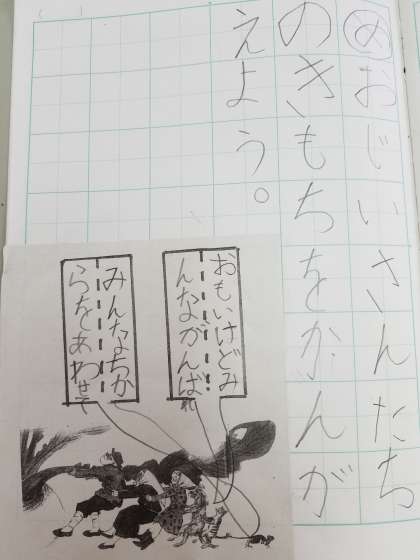 めおじいさんたち
のきもちをかんが
えよう。
おもいけどみ
んながんばれ
みんなちか
らをあわせて